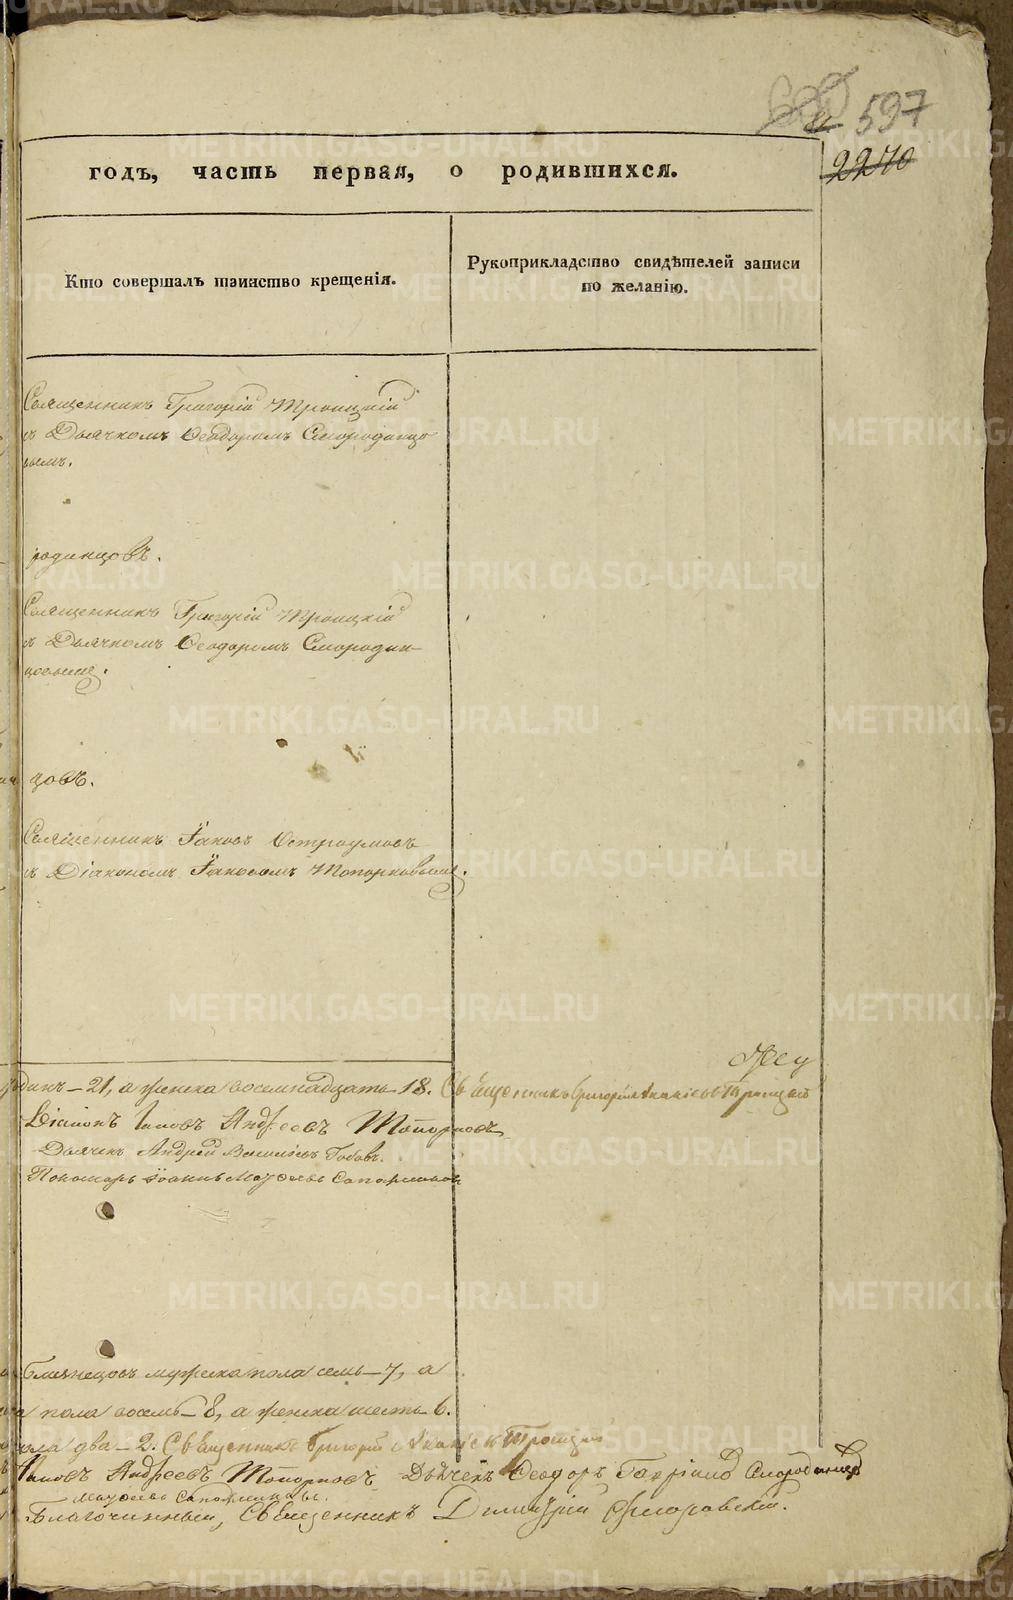 597
2270
годъ, часть первая, о родившихся.
Кто совершалъ таинство крещенія.
Рукоприкладство свидѣтелей записи
по желанію.
Священникъ Григорій Троицкій
съ Дьячкомъ Ѳеодоромъ Смородинцо
вымъ.
родинцовъ.
Священникъ Григорій Троицкій
съ Дьячкомъ Ѳеодоромъ Смородин-
цовымъ.
цовъ.
Священникъ Іаковъ Остроумовъ
съ Діакономъ Іаковомъ Топорковымъ.
одинъ – 21, а женска восемнадцать 18. Священникъ Григорій Троицкій
Діаконъ Іаковъ Андреевъ Топорковъ
Дьячекъ Андрей
Пономарь Іоаннъ
близнецовъ мужеска пола семь – 7, а
пола восемь – 8, а женска шесть 6.
пола два – 2. Священникъ Григорій Троицкій
Іаковъ Андреевъ Топорковъ Дьячекъ Ѳеодоръ Смородинцовъ
Благочинный, Священникъ Димитрій Флоровскій.
METRIKI.GASO-URAL.RU